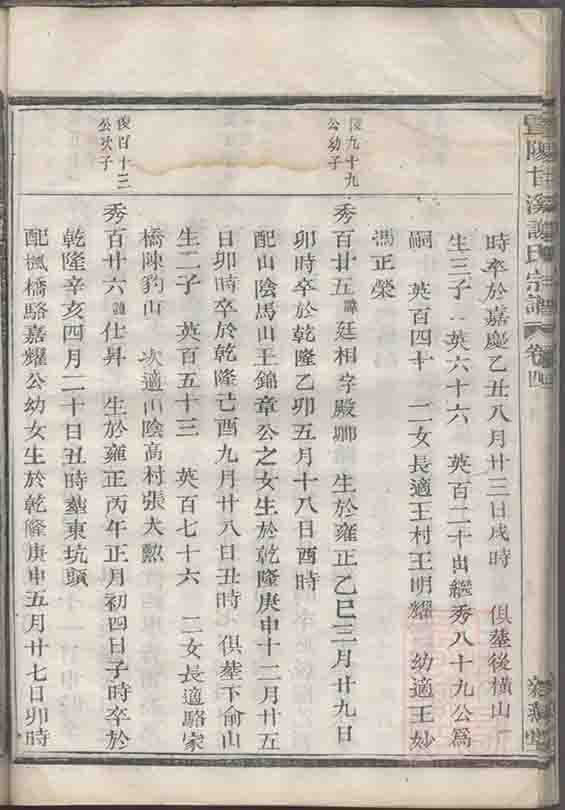 暨陽甘溪謝氏宗譜
卷四
時卒於嘉慶乙丑八月廿三日戌時 俱塟後橫山
生三子 英六十六 英百二十出繼秀八十九公為
嗣 英百四十 二女長適王村王明耀 幼適王妙
馮正榮
俊九十九
公幼子
秀百廿五諱廷相字殿聊 生於雍正乙巳三月廿九日
卯時卒於乾隆乙卯五月十八日酉時
配山陰馬山王錦章公之女生於乾隆庚申十二月廿五
日卯時卒於乾隆己酉九月廿八日丑時 俱塟下俞山
生二子 英百五十三 英百七十六 二女長適駱家
橋陳豹山 次適山陰高村張大勲
俊百十三
公次子
秀百廿六諱仕昇 生於雍正丙午正月初四日子時卒於
乾隆辛亥四月二十日丑時塟東坑頭
配楓橋駱嘉耀公幼女生於乾隆庚申五月廿七日卯時